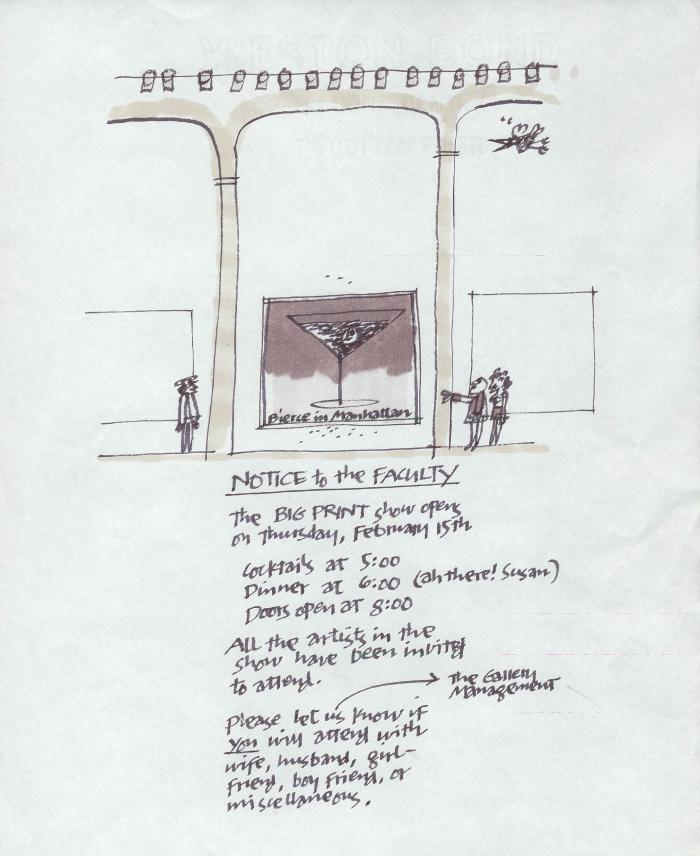 Bierce in Manhattan
NOTICE to the FACULTY
The BIG PRINT show opens
on Thursday, February 15th
Cocktails at 5:00
Dinner at 6:00 (ah there! Susan)
Doors open at 8:00
All the artists in the
show have been invited
to attend.
The Gallery
Management
Please let us know if
you will attend with
wife, husband, girl-
friend, boy friend, or
miscellaneous.